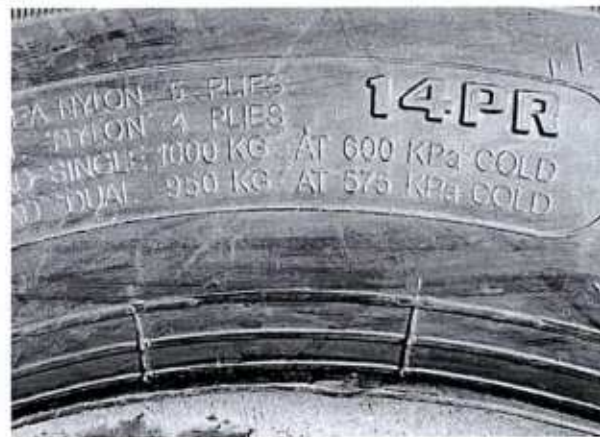 NYLON 6 PLIES
NYLON 4 PLIES
14.PR
SINGLE 1000 KG AT 600 KPa COLD
DUAL 950 KG AT 575 KPa COLD